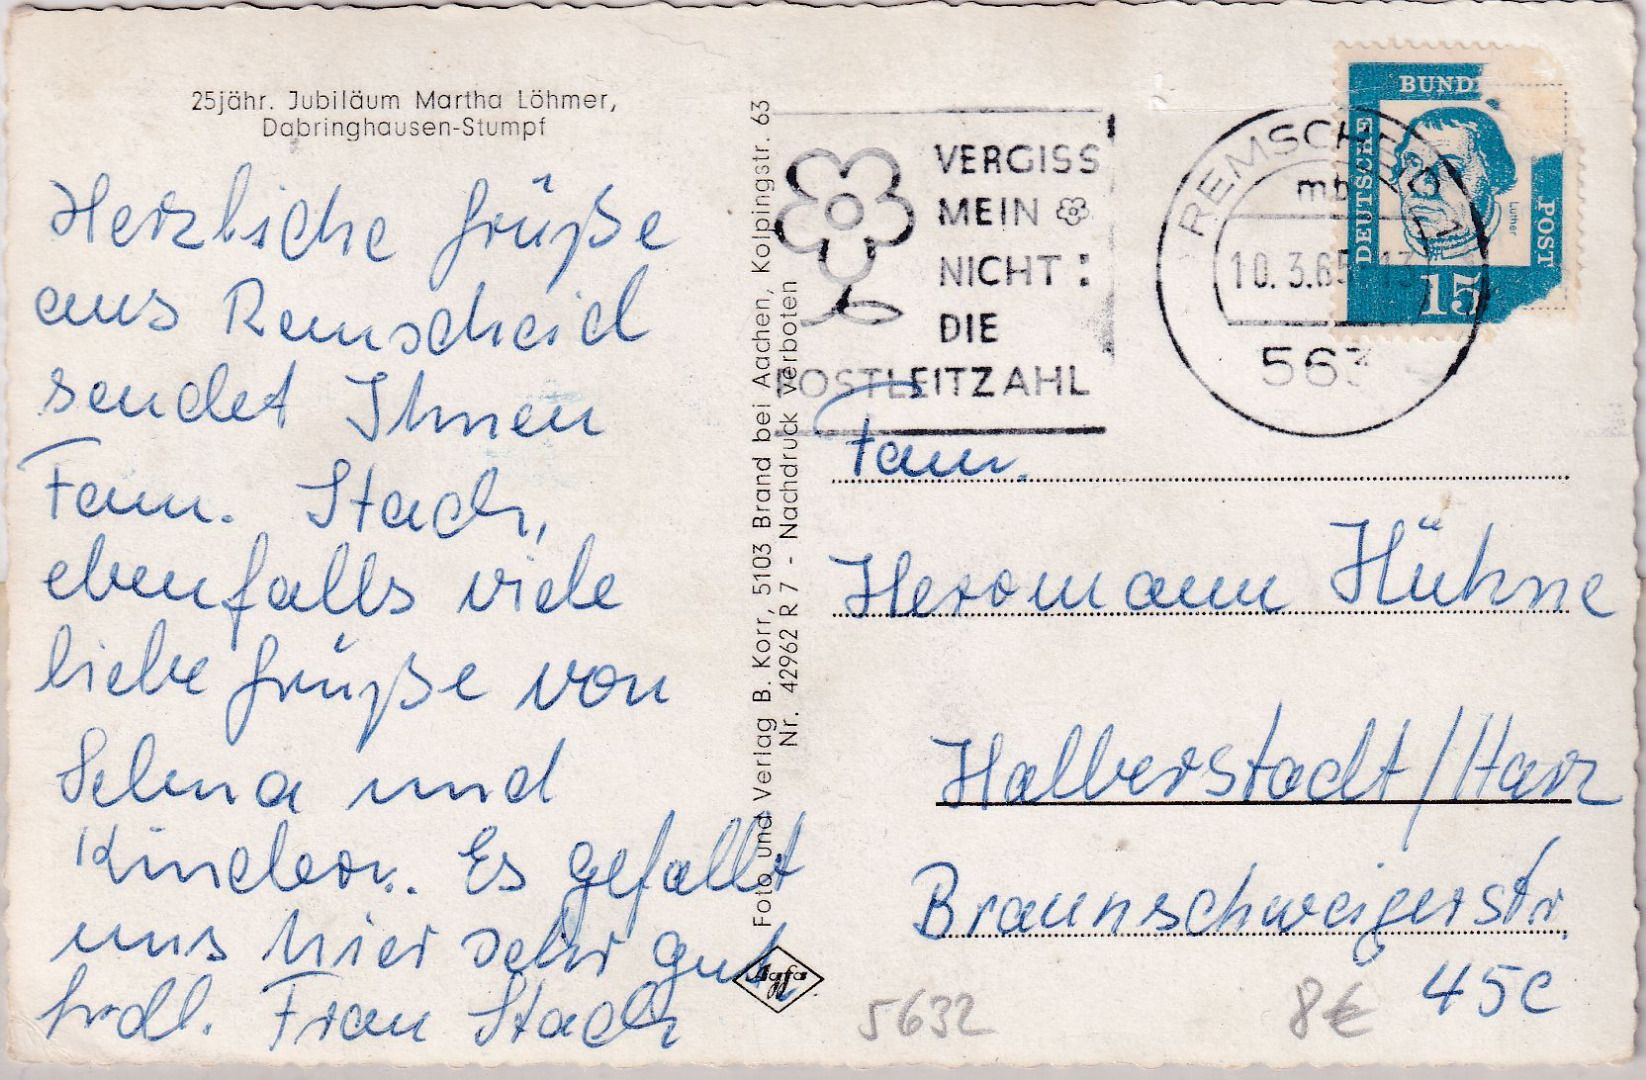 25jähr. Jubiläum Martha Löhmer,
Dabringhausen-Stumpf
Herzliche Grüße
aus Remscheid
sendet Ihnen
Fam. Stach,
ebenfalls viele
liebe Grüße von
Selma und
Kindern. Es gefällt
uns hier sehr gut
frdl. Frau Stach
Foto und Verlag B. Korr, 5103 Brand bei Aachen, Kolpingstr. 63
Nr. 42962 R 7 - Nachdruck verboten
Agfa
VERGISS
MEIN
NICHT:
DIE
POSTLEITZAHL
REMSCHEID 1
mb
10.3.65-13
563
DEUTSCHE
BUND
POST
Luther
15
Fam.
Hermann Hühne
Halberstadt/Harz
Braunschweigerstr.
45c
5632
8€